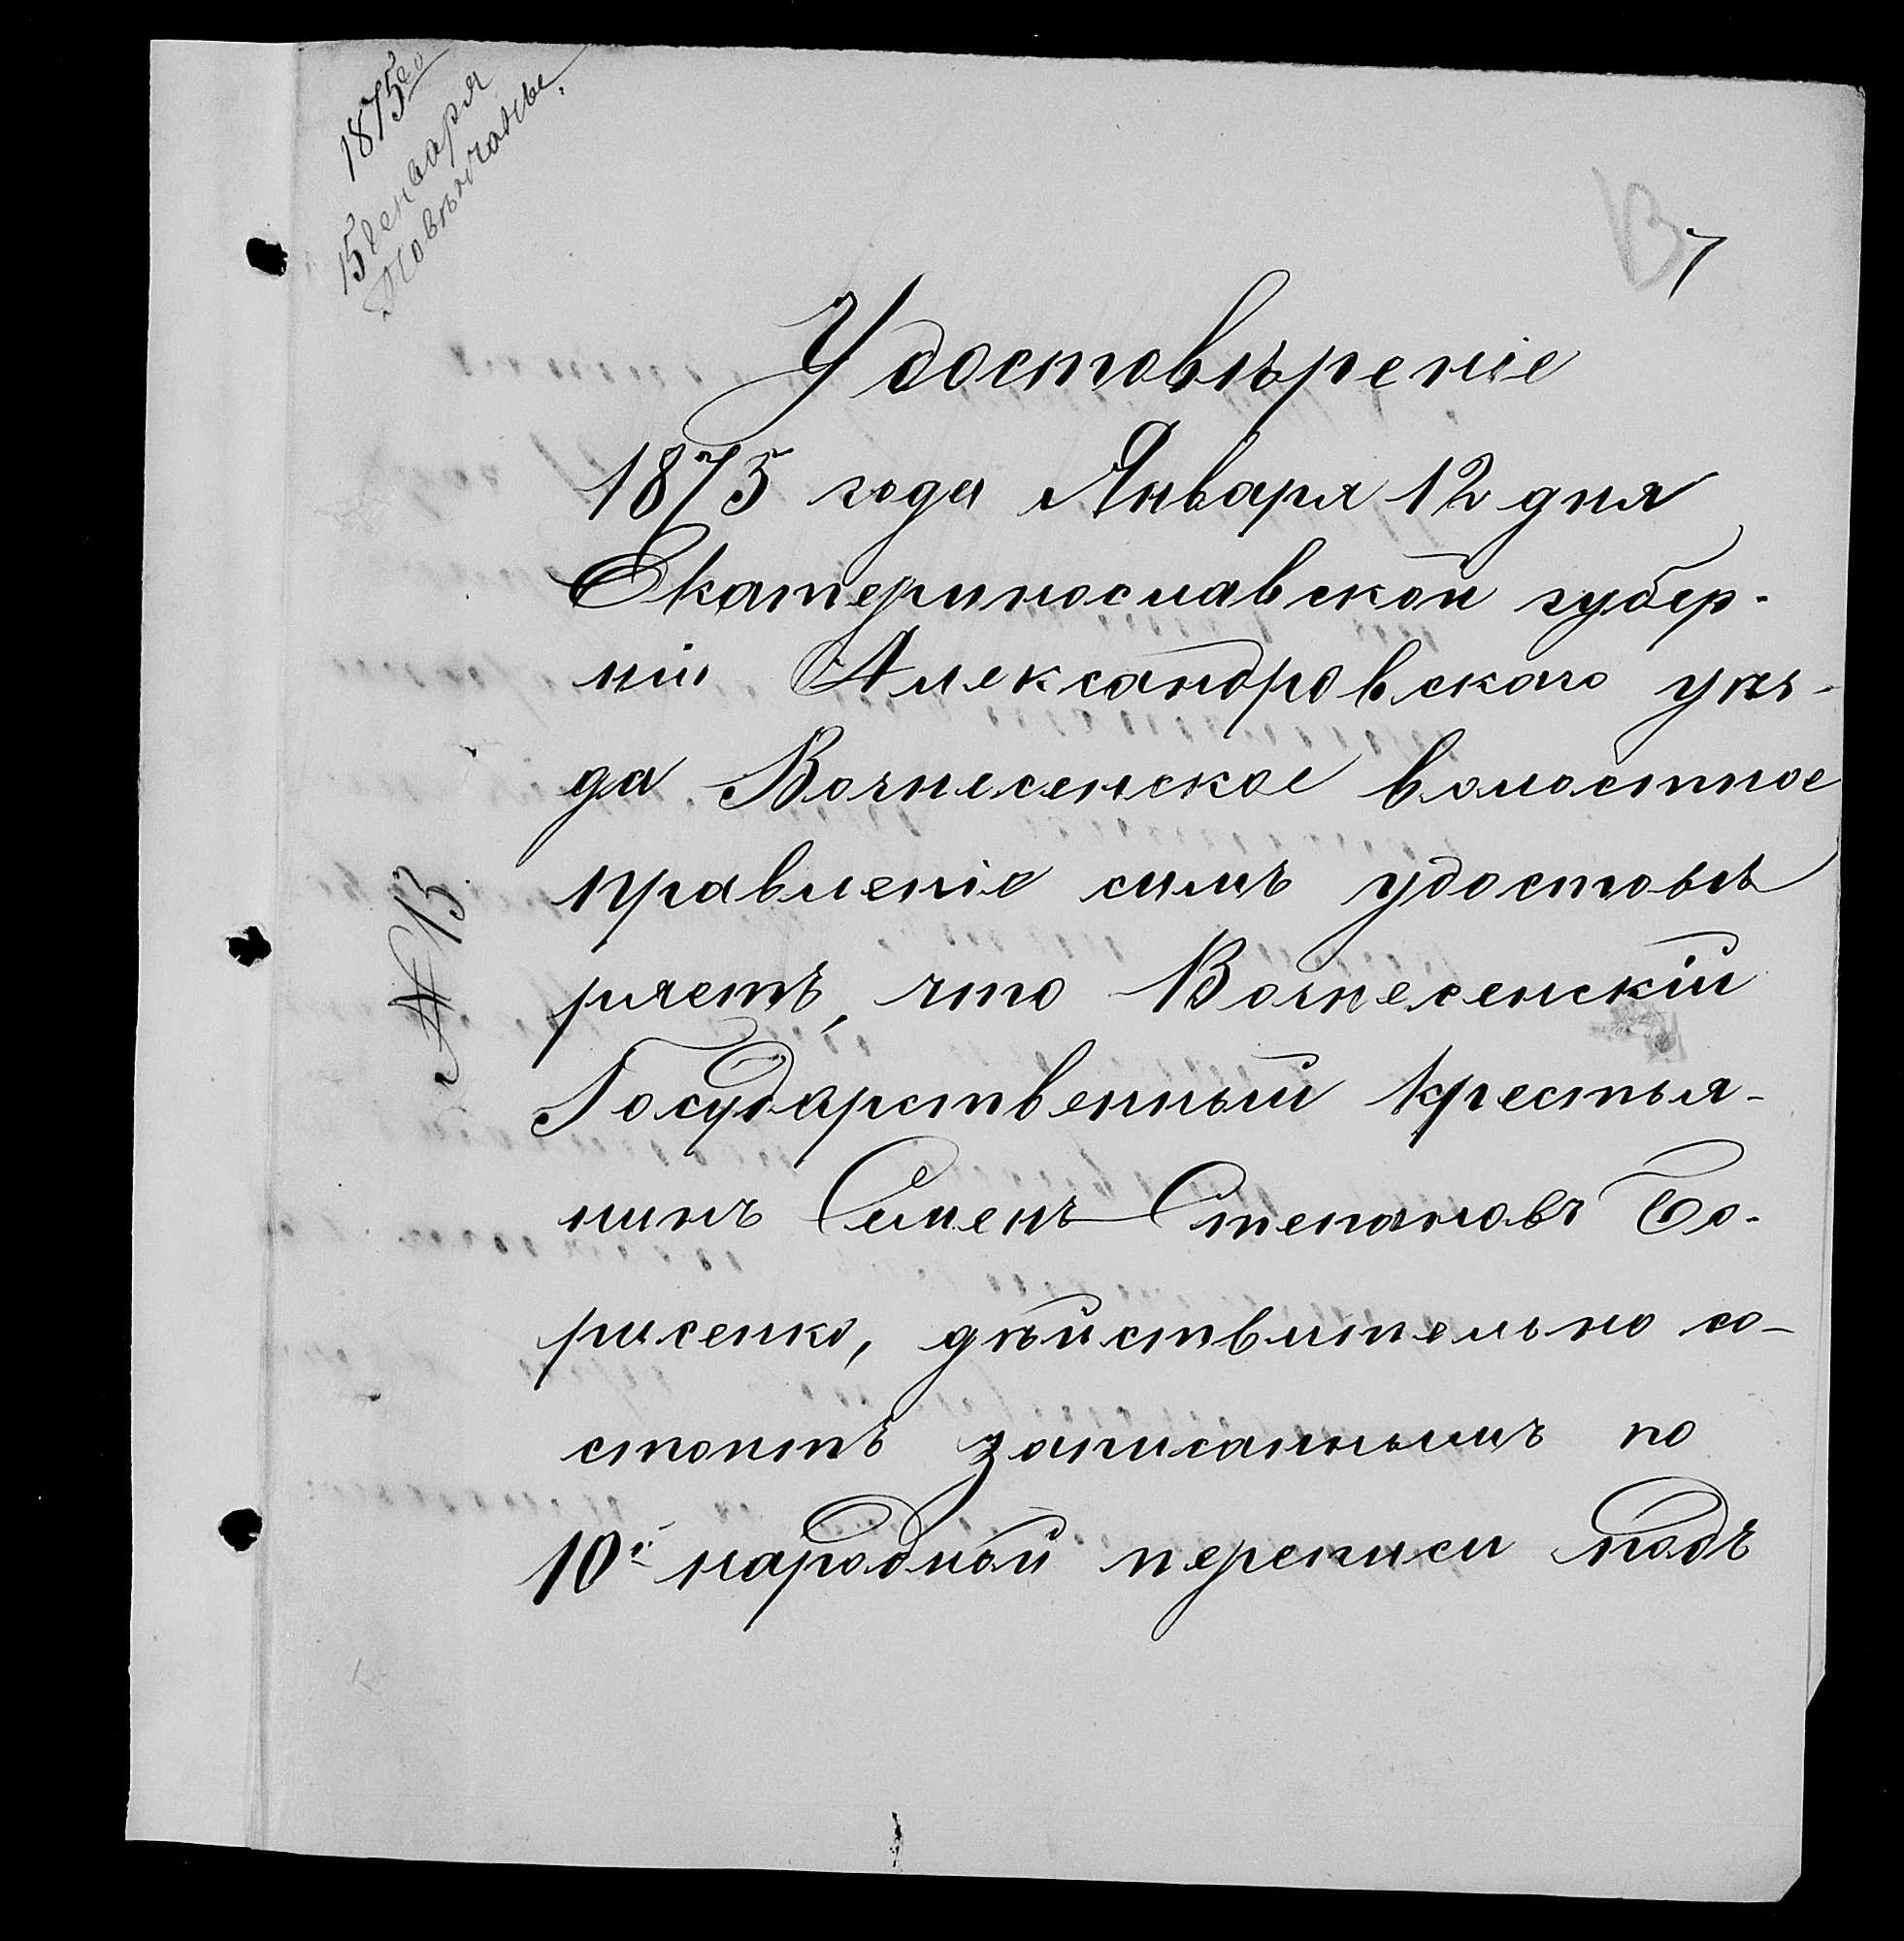 1875го
15 Генваря
Повѣнчаны.
7
Удостовѣреніе
1875 года Января 12 дня
Екатеринославской губер-
ніи Александровскаго уѣз-
да Вознесенское волостное
правленіе симъ удостовѣ
ряетъ, что Вознесенскій
Государственный крестья-
нинъ Семенъ Степановъ Бо-
рисенко, дѣйствительно со-
стоитъ записаннымъ по
10й народной переписи подъ
№ 13.